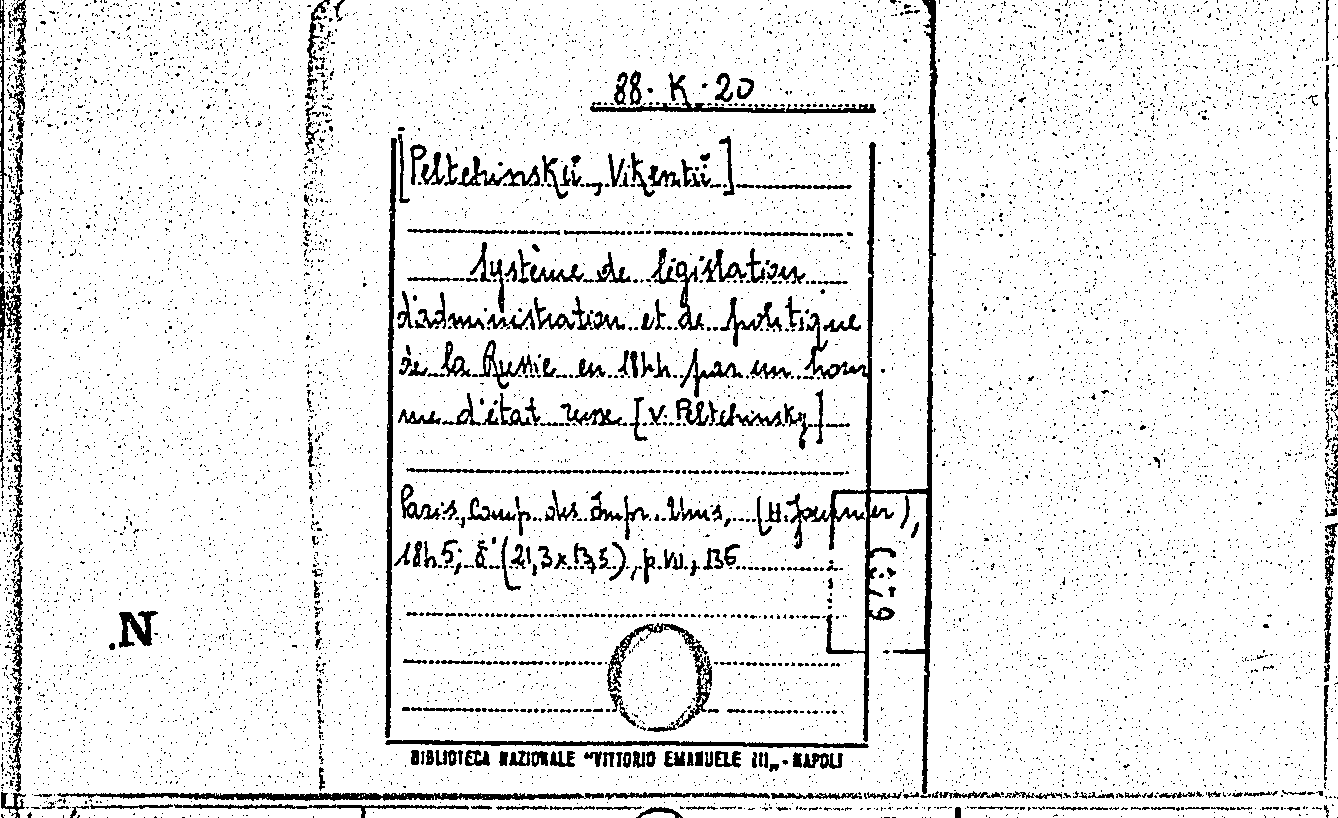 88. K. 20
[Peltchinskiĭ, Vikentiĭ]
Système de législation
d'administration et de politique
de la Russie en 1844 par un hom-
me d'état russe [V. Peltchinsky]
Paris, Comp. des Impr. Unis, (H. Fournier),
1845; 8° (21,3x13,5), p. VII, 136
N
BIBLIOTECA NAZIONALE "VITTORIO EMANUELE III„ - NAPOLI